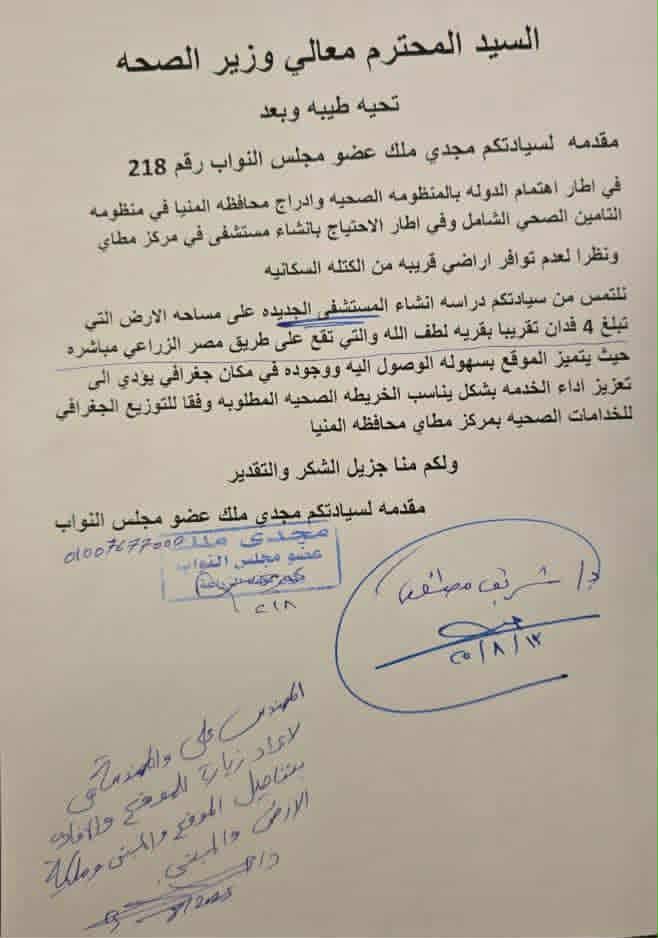 السيد المحترم معالي وزير الصحه
تحيه طيبه وبعد
مقدمه لسيادتكم مجدي ملك عضو مجلس النواب رقم 218
في اطار اهتمام الدوله بالمنظومه الصحيه وادراج محافظه المنيا في منظومه
التامين الصحي الشامل وفي اطار الاحتياج بانشاء مستشفى في مركز مطاي
ونظرا لعدم توافر اراضي قريبه من الكتله السكانيه
نلتمس من سيادتكم دراسه انشاء المستشفى الجديده على مساحه الارض التي
تبلغ 4 فدان تقريبا بقريه لطف الله والتي تقع على طريق مصر الزراعي مباشره
حيث يتميز الموقع بسهوله الوصول اليه ووجوده في مكان جغرافي يؤدي الى
تعزيز اداء الخدمه بشكل يناسب الخريطه الصحيه المطلوبه وفقا للتوزيع الجغرافي
للخدامات الصحيه بمركز مطاي محافظه المنيا
ولكم منا جزيل الشكر والتقدير
مقدمه لسيادتكم مجدي ملك عضو مجلس النواب
مجدى ملك
عضو مجلس النواب
٢١٨
د/ شريف مصطفى
المهندس على والمهندسة
لاعداد زيارة للموقع والافاده
بتفاصيل الموقع والمبنى وملكية
الارض والمبنى